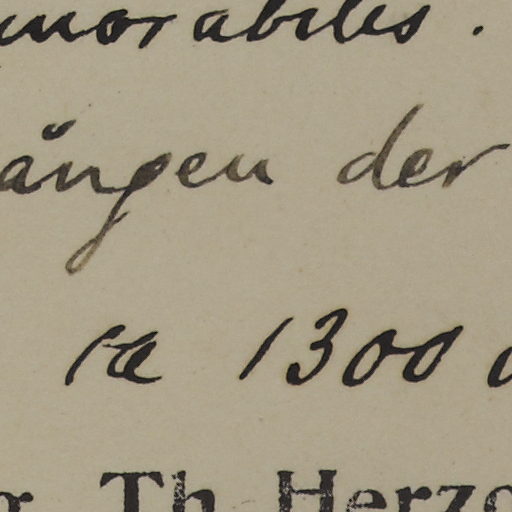 morabilis.
ängen der
ca 1300
Th. Herzo